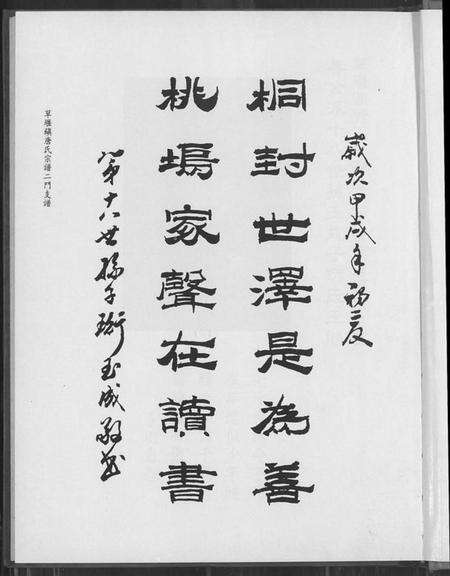 歲次甲戌年初夏
桐封世澤是為善
桃塢家聲在讀書
第十八世孫子玉成敬書
草堰鎮唐氏宗譜二門支譜